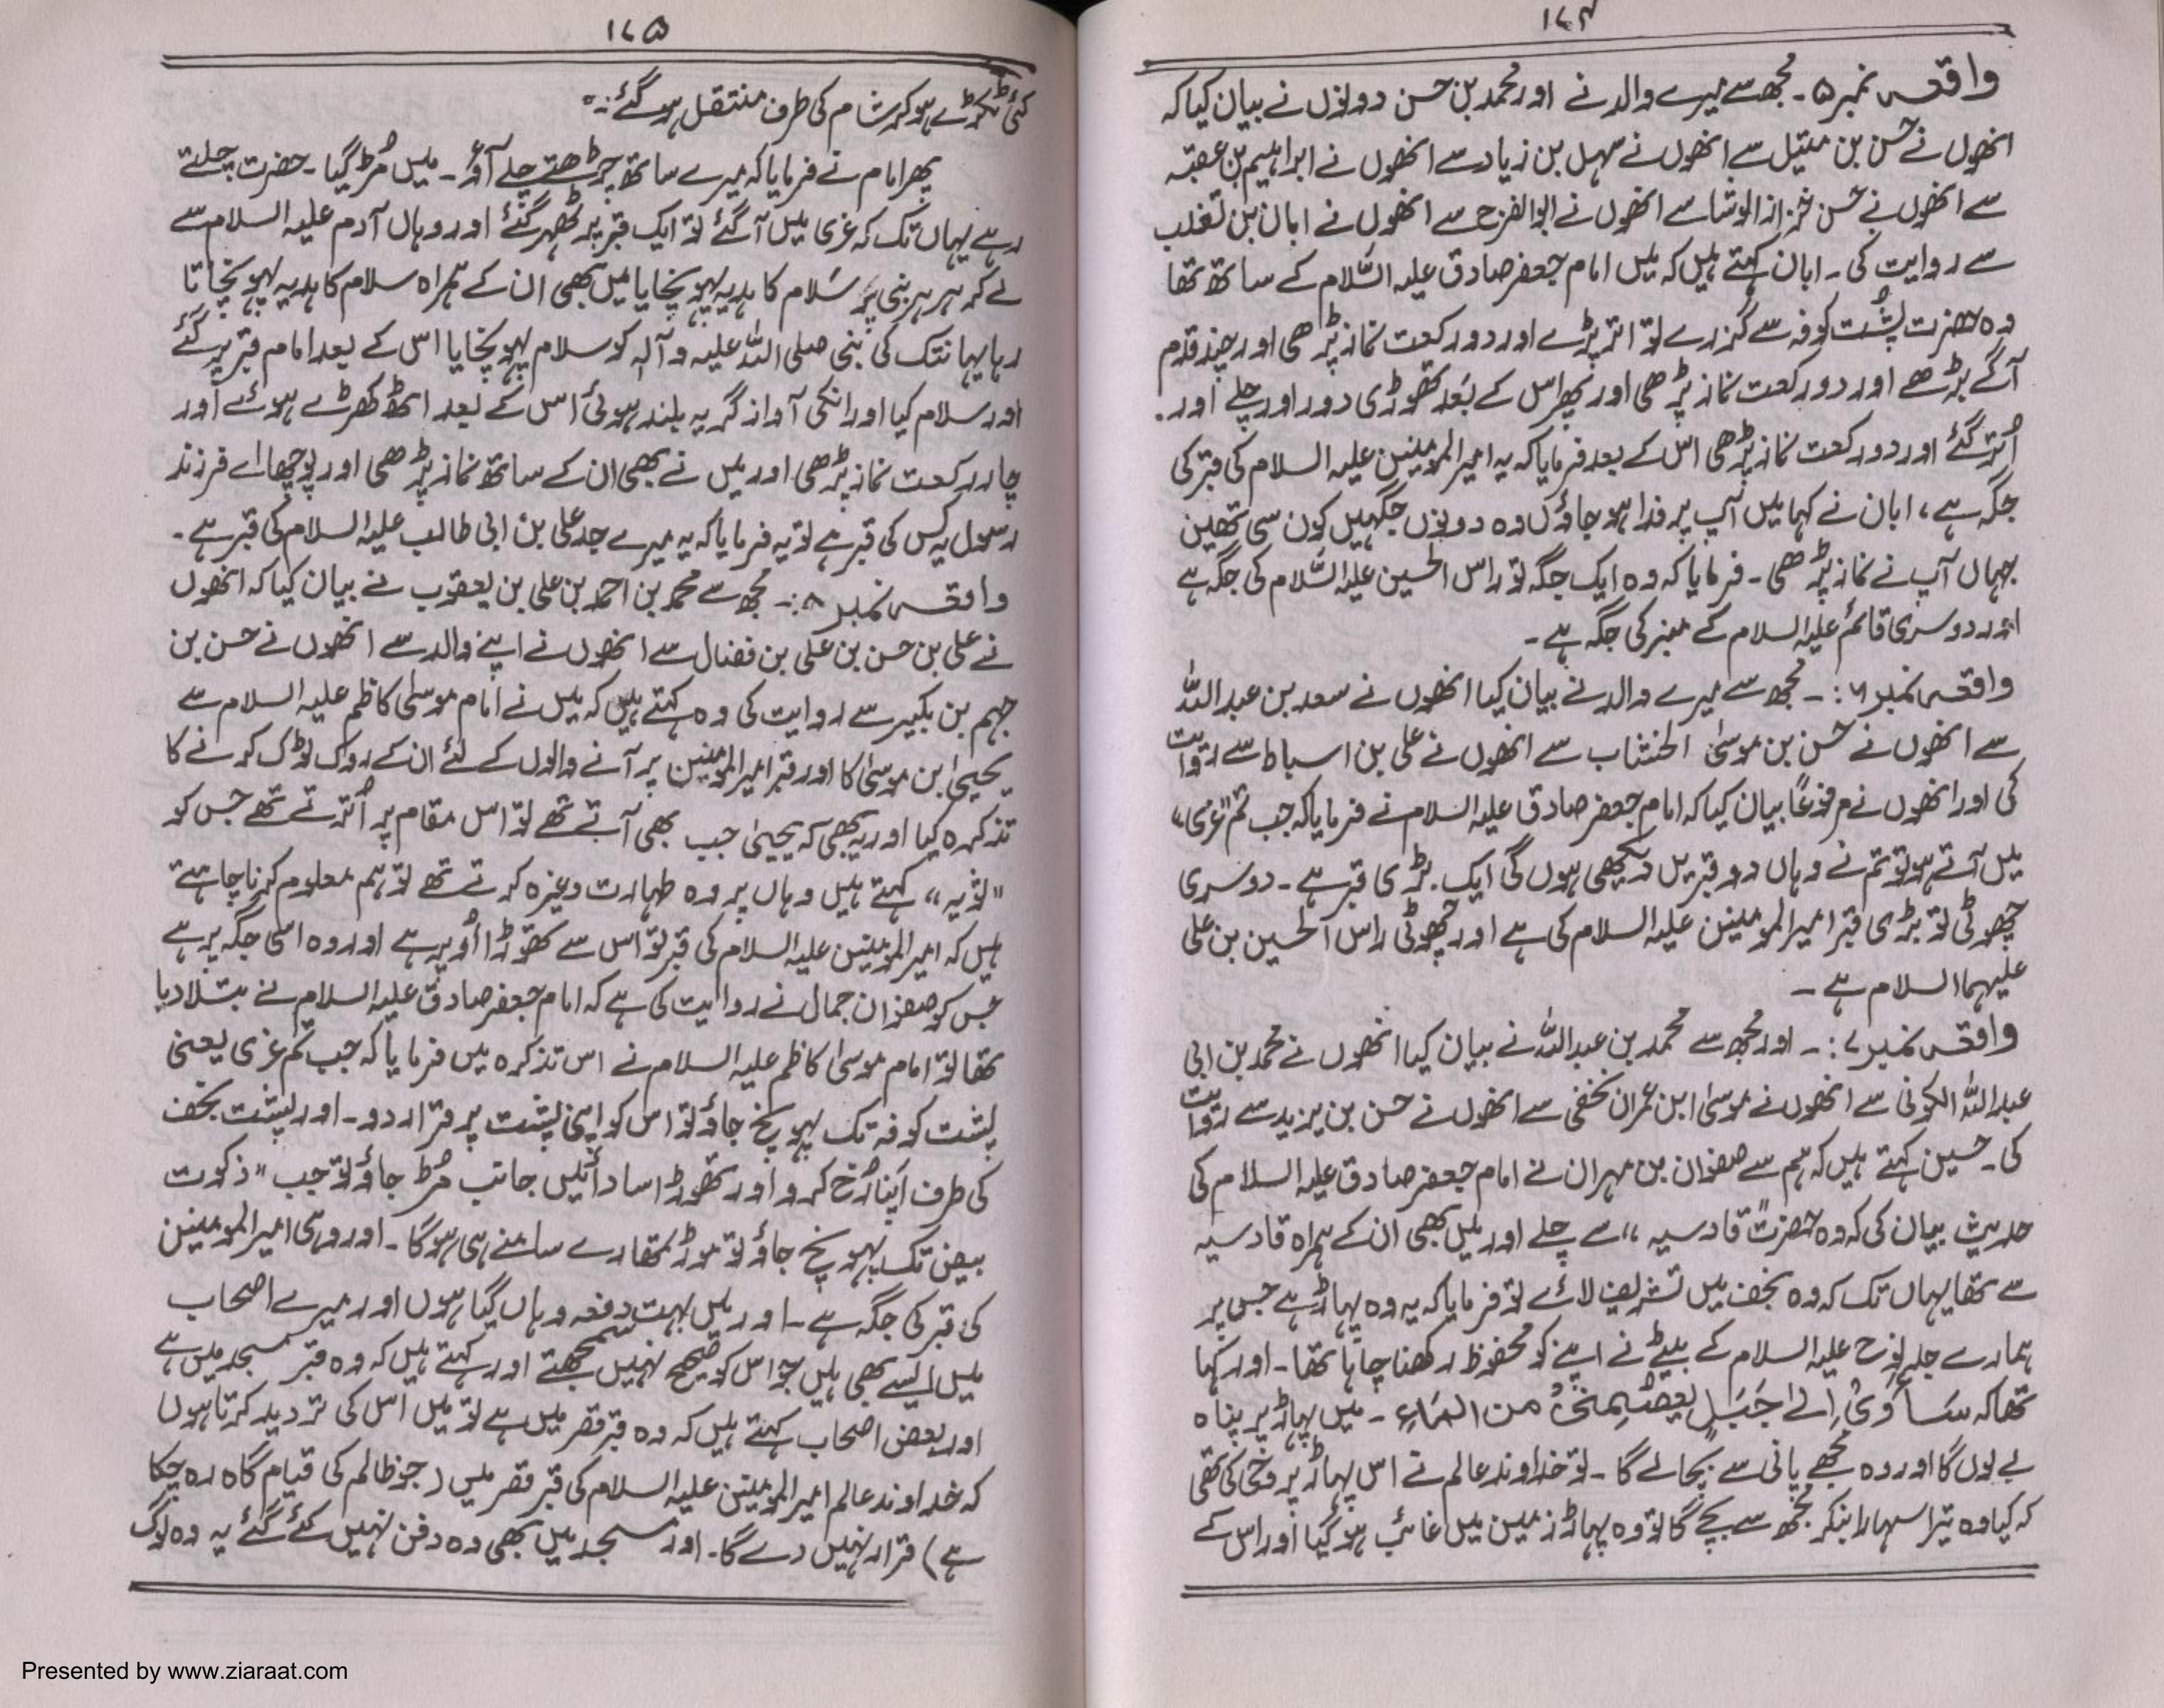 ۱۷۴
واقعہ نمبر ۵۔ مجھ سے میرے والد نے اور محمد بن حسن دونوں نے بیان کیا کہ
انھوں نے حسن بن متیل سے انھوں نے سہل بن زیاد سے انھوں نے ابراہیم بن عقبہ
سے انھوں نے حسن خزاز الوشا سے انھوں نے ابوالفرج سے انھوں نے ابان بن تغلب
سے روایت کی۔ ابان کہتے ہیں کہ میں امام جعفر صادق علیہ السّلام کے ساتھ تھا
وہ حضرت پشت کوفہ سے گزرے تو اتر پڑے اور دو رکعت نماز پڑھی اور چند قدم
آگے بڑھے اور دو رکعت نماز پڑھی اور پھر اس کے بعد تھوڑی دور اور چلے اور۔
اُتر گئے اور دو رکعت نماز پڑھی اس کے بعد فرمایا کہ یہ امیرالمومنین علیہ السلام کی قبر کی
جگہ ہے، ابان نے کہا میں آپ پر فدا ہو جاؤں وہ دونوں جگہیں کون سی تھیں
جہاں آپ نے نماز پڑھی۔ فرمایا کہ وہ ایک جگہ تو راس الحسین علیہ السّلام کی جگہ ہے
اور دوسری قائم علیہ السلام کے منبر کی جگہ ہے۔
واقعہ نمبر ۶:۔ مجھ سے میرے والد نے بیان کیا انھوں نے سعد بن عبداللہ
سے انھوں نے حسن بن موسیٰ الخشاب سے انھوں نے علی بن اسباط سے روایت
کی اور انھوں نے مرفوعاً بیان کیا کہ امام جعفر صادق علیہ السلام نے فرمایا کہ جب تم "غری"
میں آتے ہو تو تم نے وہاں دو قبریں دیکھی ہوں گی ایک بڑی قبر ہے۔ دوسری
چھوٹی تو بڑی قبر امیرالمومنین علیہ السلام کی ہے اور چھوٹی راس الحسین بن علی
علیہما السلام ہے۔
واقعہ نمبر ۷:۔ اور مجھ سے محمد بن عبداللہ نے بیان کیا انھوں نے محمد بن ابی
عبداللہ الکوفی سے انھوں نے موسیٰ ابن عمران نخفی سے انھوں نے حسن بن یزید سے روایت
کی۔ حسین کہتے ہیں کہ ہم سے صفوان بن مہران نے امام جعفر صادق علیہ السلام کی
حدیث بیان کی کہ وہ حضرت "قادسیہ" سے چلے اور میں بھی ان کے ہمراہ قادسیہ
سے تھا یہاں تک کہ وہ نجف میں تشریف لائے تو فرمایا کہ یہ وہ پہاڑ ہے جس پر
ہمارے جد نوح علیہ السلام کے بیٹے نے اپنے کو محفوظ رکھنا چاہا تھا۔ اور کہا
تھا کہ سَآوِیْ اِلیٰ جَبَلٍ یَعْصِمُنِیْ من الماءِ۔ میں پہاڑ پر پناہ
لے لوں گا اور وہ مجھے پانی سے بچا لے گا۔ تو خداوند عالم نے اس پہاڑ پر وحی کی تھی
کہ کیا وہ تیرا سہارا بنکر مجھ سے بچے گا تو وہ پہاڑ زمین میں غائب ہو گیا اور اس کے
۱۷۵
کئی ٹکڑے ہو کر شام کی طرف منتقل ہو گئے :۔
پھر امام نے فرمایا کہ میرے ساتھ چڑھتے چلے آؤ۔ میں مُڑ گیا۔ حضرت چلتے
رہے یہاں تک کہ غری میں آ گئے تو ایک قبر پر ٹھہر گئے اور وہاں آدم علیہ السلام سے
لے کر ہر ہر نبی پر سَلام کا ہدیہ پہونچایا میں بھی ان کے ہمراہ سلام کا ہدیہ پہونچاتا
رہا یہانتک کی نبی صلی اللہ علیہ و آلہٖ کو سلام پہونچایا اس کے بعد امام قبر پر گئے
اور سلام کیا اور انکی آواز گریہ بلند ہوئی اس کے بعد اٹھ کھڑے ہوئے اور
چار رکعت نماز پڑھی اور میں نے بھی ان کے ساتھ نماز پڑھی اور پوچھا اے فرزند
رسول یہ کس کی قبر ہے تو یہ فرمایا کہ یہ میرے جد علی بن ابی طالب علیہ السلام کی قبر ہے۔
واقعہ نمبر ۸:۔ مجھ سے محمد بن احمد بن علی بن یعقوب نے بیان کیا کہ انھوں
نے علی بن حسن بن علی بن فضال سے انھوں نے اپنے والد سے انھوں نے حسن بن
جہم بن بکیر سے روایت کی وہ کہتے ہیں کہ میں نے امام موسیٰ کاظم علیہ السلام سے
یحییٰ ابن موسیٰ کا اور قبر امیرالمومنین پر آنے والوں کے لئے ان کے روک ٹوک کرنے کا
تذکرہ کیا اور یہ بھی کہ یحییٰ جب بھی آتے تھے تو اس مقام پر اُترتے تھے جس کو
"ثویہ" کہتے ہیں وہاں پر وہ طہارت وغیرہ کرتے تھے تو ہم معلوم کرنا چاہتے
ہیں کہ امیرالمومنین علیہ السلام کی قبر تو اس سے تھوڑا اُوپر ہے اور وہ اسی جگہ پر ہے
جس کو صفوان جمال نے روایت کی ہے کہ امام جعفر صادق علیہ السلام نے بتلا دیا
تھا تو امام موسیٰ کاظم علیہ السلام نے اس تذکرہ میں فرمایا کہ جب تم غری یعنی
پشت کوفہ تک پہونچ جاؤ تو اس کو اپنی پشت پر قرار دو۔ اور پشت نجف
کی طرف اپنا رُخ کرو اور تھوڑا سا دائیں جانب مُڑ جاؤ تو جب "ذکوت
بیض تک پہونچ جاؤ تو موڑ تمھارے سامنے ہی ہوگا۔ اور وہی امیرالمومنین
کی قبر کی جگہ ہے۔ اور میں بہت دفعہ وہاں گیا ہوں اور میرے اصحاب
میں ایسے بھی ہیں جو اس کو صحیح نہیں سمجھتے اور کہتے ہیں کہ وہ قبر مسجد میں ہے
اور بعض اصحاب کہتے ہیں کہ وہ قبر قصر میں ہے تو میں اس کی تردید کرتا ہوں
کہ خداوند عالم امیرالمومنین علیہ السلام کی قبر قصر میں (جو ظالم کی قیام گاہ رہ چکا
ہے) قرار نہیں دے گا۔ اور مسجد میں بھی وہ دفن نہیں کئے گئے یہ وہ لوگ
Presented by www.ziaraat.com